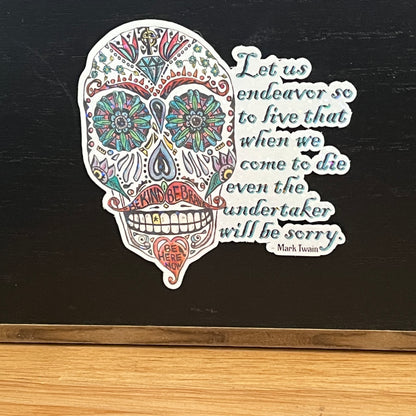 Let us
endeavor so
to live that
when we
come to die
even the
undertaker
will be sorry.
- Mark Twain
BE KIND BE BRAVE
BE
HERE
NOW